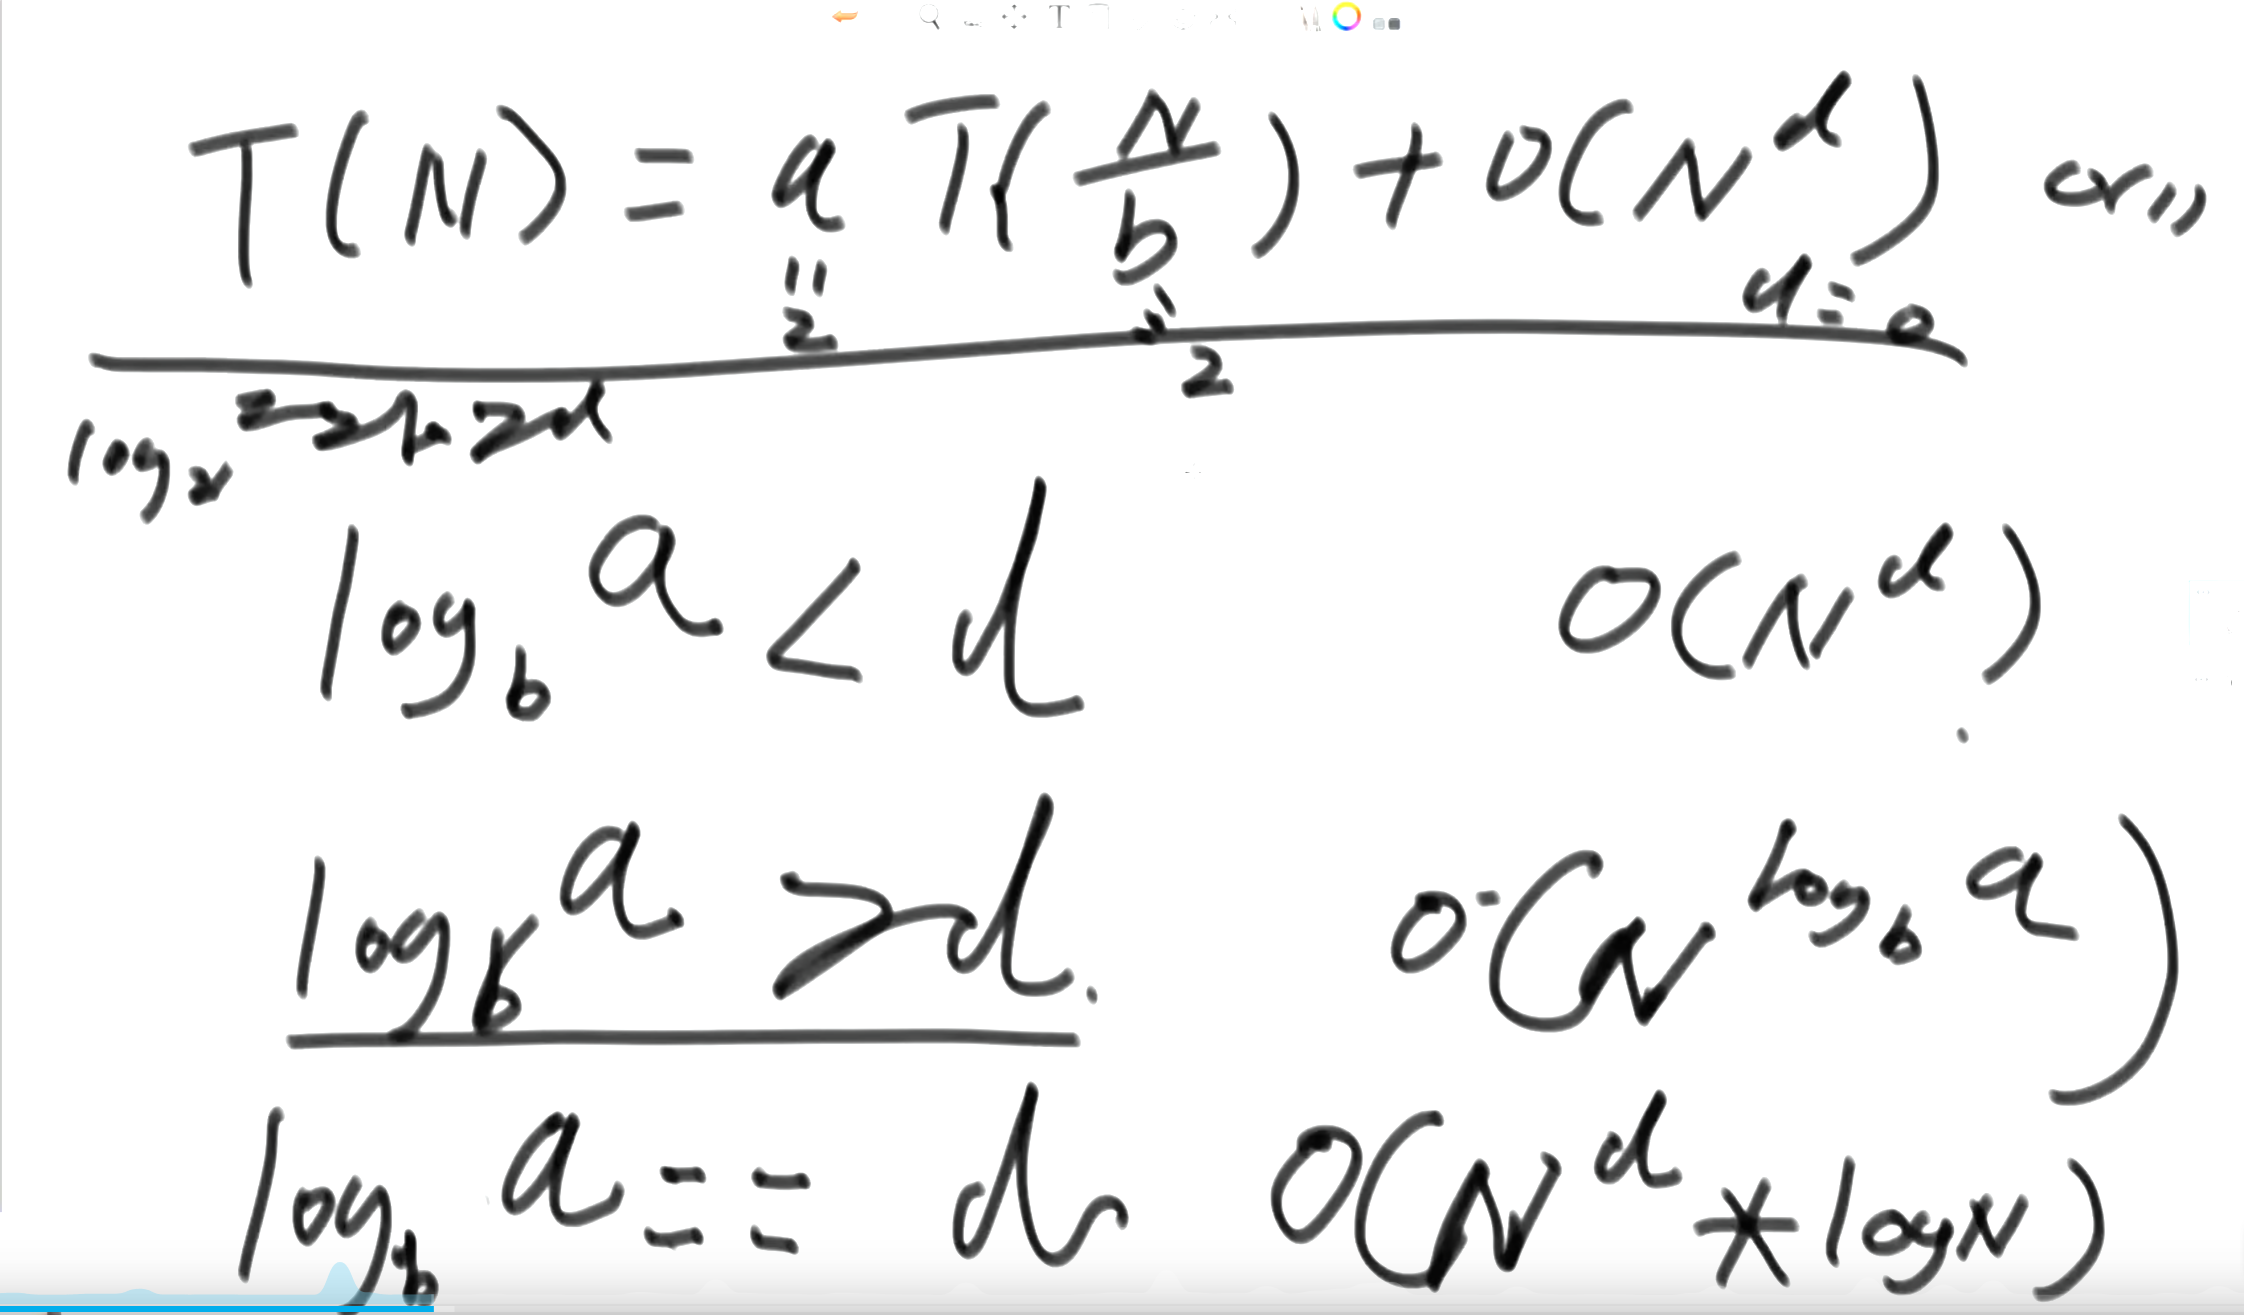 T(N) = a T(N/b) + O(N^d) O(1)
a = 2 b = 2 d = 0
log_2 2 = 1 > d
log_b a < d O(N^d)
log_b a > d. O(N^log_b a)
log_b a == d O(N^d * logN)